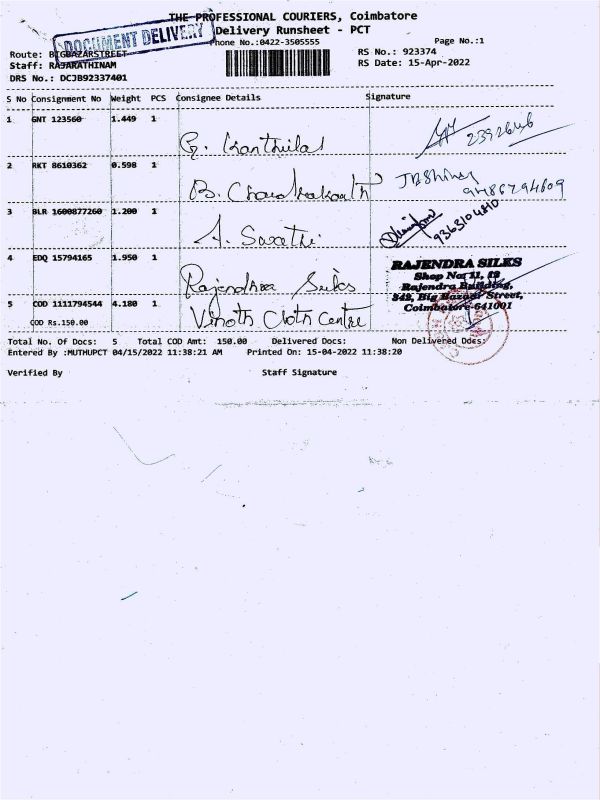 THE PROFESSIONAL COURIERS, Coimbatore
DOCUMENT DELIVERY
Delivery Runsheet - PCT
Phone No.:0422-3505555
Page No.:1
Route: BIGBAZARSTREET
RS No.: 923374
Staff: RAJARATHINAM
RS Date: 15-Apr-2022
DRS No.: DCJB92337401
S No Consignment No Weight PCS Consignee Details Signature
1 GNT 123560 1.449 1
2 RKT 8610362 0.598 1
B. Chandrakanth
3 BLR 1600877260 1.200 1
A. Sarathi
4 EDQ 15794165 1.950 1
Rajendraa Silks
RAJENDRA SILKS
Shop No: 11, 12
Rajendra Building,
342, Big Bazaar Street,
Coimbatore-641001
5 COD 1111794544 4.180 1
Vinoth Cloth Centre
COD Rs.150.00
Total No. Of Docs: 5 Total COD Amt: 150.00 Delivered Docs: Non Delivered Docs:
Entered By :MUTHUPCT 04/15/2022 11:38:21 AM Printed On: 15-04-2022 11:38:20
Verified By Staff Signature